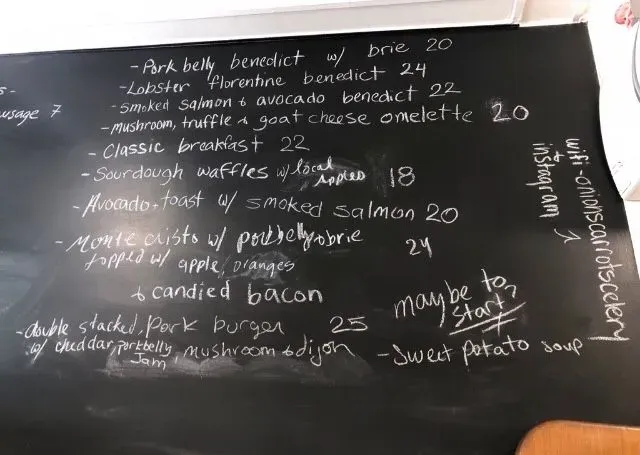 s -
usage 7
- Pork belly benedict w/ brie 20
- Lobster florentine benedict 24
- smoked salmon & avocado benedict 22
- mushroom, truffle & goat cheese omelette 20
- Classic breakfast 22
- Sourdough waffles w/ local apples 18
- Avocado toast w/ smoked salmon 20
- Monte cristo w/ porkbelly & brie 24
topped w/ apple, oranges
& candied bacon
- double stacked pork burger 25
w/ cheddar, porkbelly Jam, mushroom & dijon
maybe to start?
- Sweet potato soup
wifi - onionscarrotscelery
+
instagram